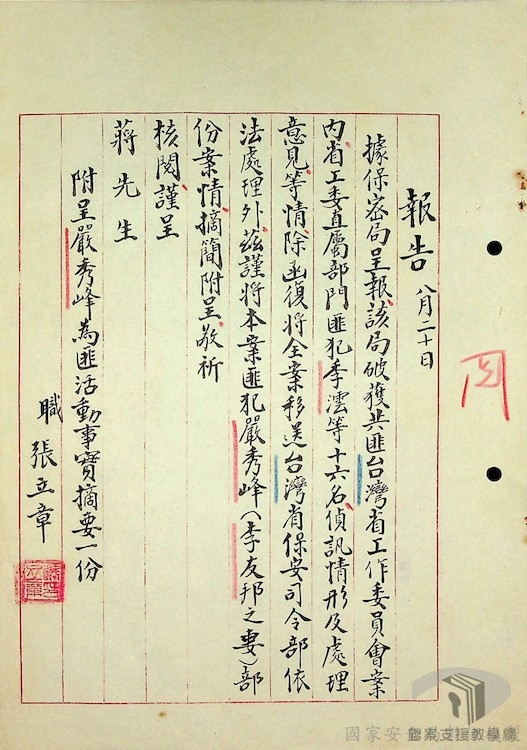 報告 八月二十日
據保密局呈報該局破獲共匪台灣省工作委員會案
內、省工委直屬部門匪犯李澐等十六名、偵訊情形及處理
意見、等情、除函復將全案移送台灣省保安司令部依
法處理外、茲謹將本案匪犯嚴秀峰(李友邦之妻)部
份案情、摘簡附呈、敬祈
核閱、謹呈
蔣先生
附呈嚴秀峰為匪活動事實摘要一份
職 張立章
檔案支援教學網